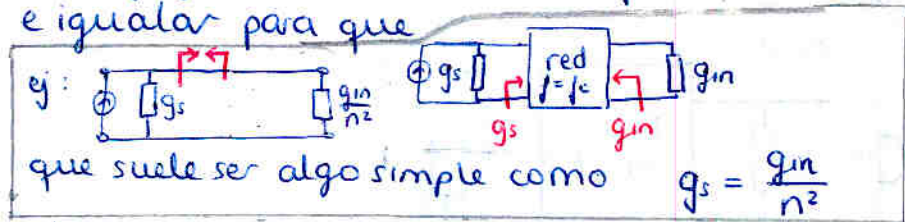 e igualar para que
ej: gs gin/n² gs red f=fc gin
gs gin
que suele ser algo simple como gs = gin/n²